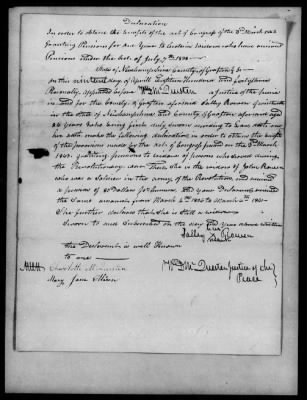 Declaration
In order to obtain the benefits of the act of Congress of the 3d March 1843
granting Pensions for one Year to Certain persons who have received
Pensions under the act of July 7th 1838
State of Newhampshire County of Grafton
On this day of April Eighteen Hundred and forty three
Personally appeared before Wm D. McQuesten a Justice of the peace
in and for the County of Grafton aforesaid Sally Rowen
in the State of Newhampshire and County of Grafton aforesaid aged
years who being first duly sworn according to law doth on
her oath make the following declaration in order to obtain the benefit
of the provisions made by the act of Congress passed on the 3d March
1843 granting pensions to widows of persons who served during
the Revolutionary war That She is the widow of John Rowen
who was a Soldier in the army of the Revolution, and
a pension of 80 Dollars pr annum and your Declarant received
the Same amount from March 4th 1836 to March 4th 1841
She further declares that She is still a widow
Sworn to and Subscribed on the day and year above written
her
Sally X Rowen
mark
this Declarant is well Known
to me
Attest
Charlotte
Mary Jane
Wm D. McQuesten Justice of the
Peace